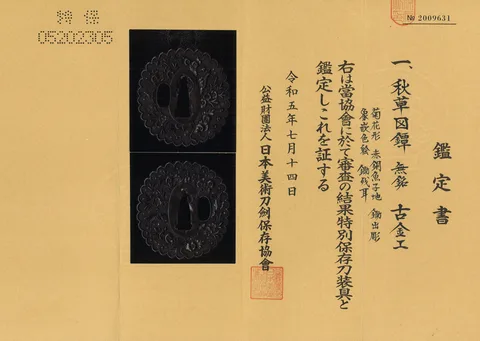 特保
05202305
№ 2009631
鑑定書
一、秋草図鐔 無銘 古金工
菊花形 赤銅魚子地 鋤出彫
象嵌色絵 鋤残耳
右は當協會に於て審査の結果特別保存刀装具と
鑑定しこれを証する
令和五年七月十四日
公益財團法人 日本美術刀剣保存協會